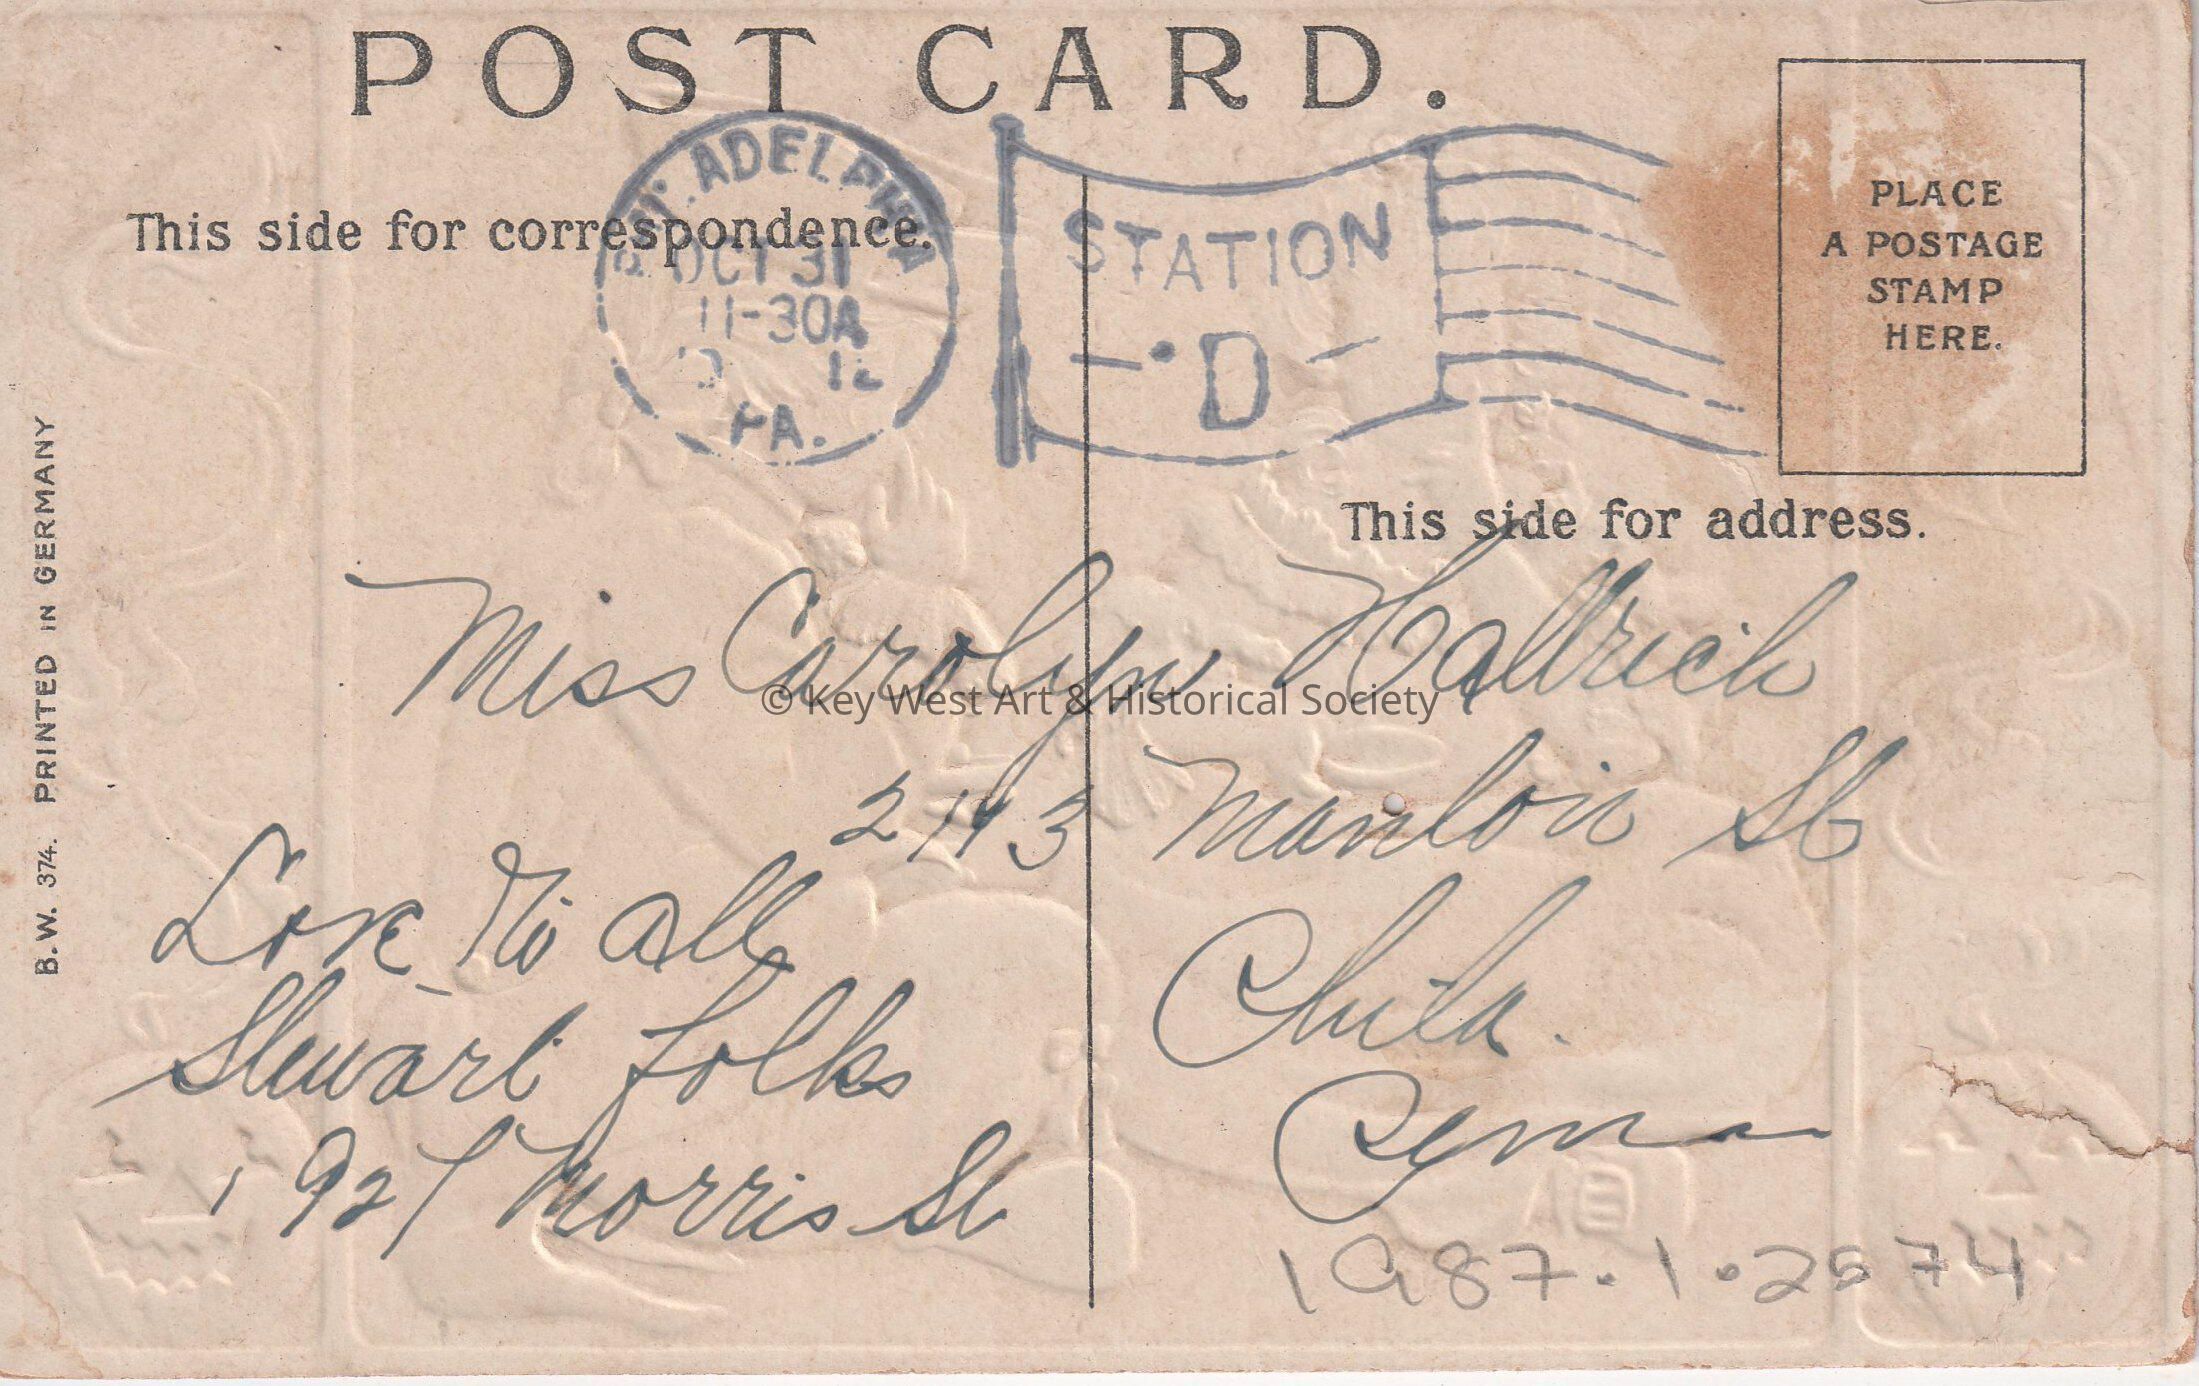 POST CARD.
This side for correspondence.
PHILADELPHIA
OCT 31
11-30A
D 12
PA.
STATION
D
PLACE
A POSTAGE
STAMP
HERE.
This side for address.
B.W. 374. PRINTED IN GERMANY
Miss Carolyn
© Key West Art & Historical Society
St
Phila.
Love to all
Stewart folks
1927 Morris St
1987.1.2574